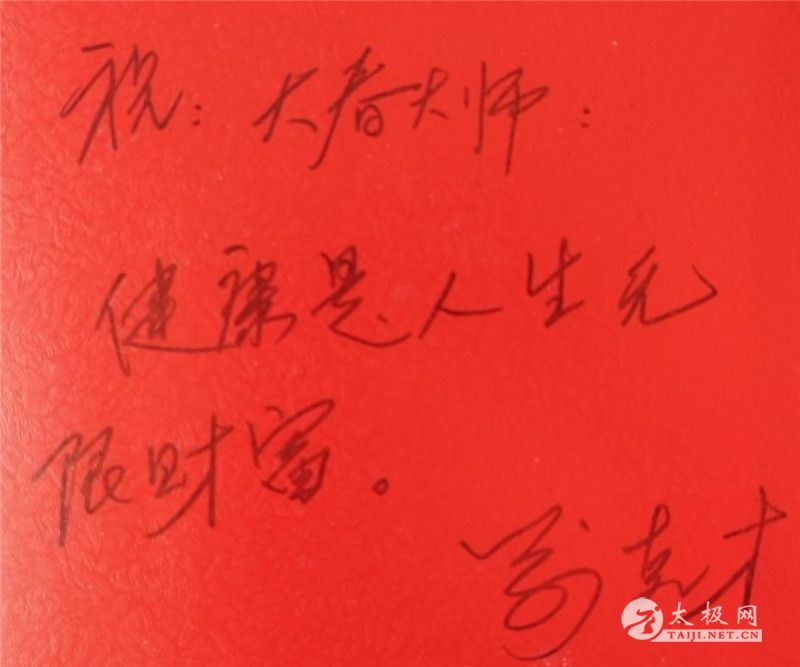 祝：大春大师：
健康是人生无
限财富。
太极网
TAIJI.NET.CN